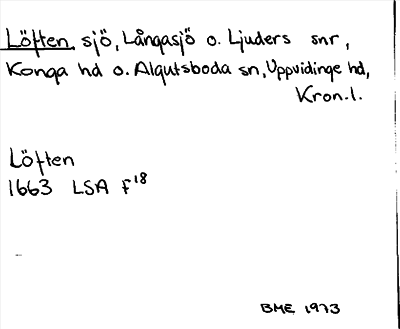 Löften sjö, Långasjö o. Ljuders snr,
Konga hd o. Algutsboda sn, Uppvidinge hd,
Kron.l.
Löften
1663 LSA F18
BME 1973